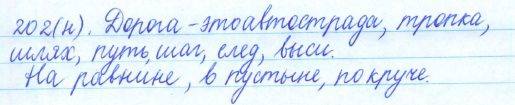 202(н). Дорога - это автострада, тропка,
шлях, путь, шаг, след, выси.
На равнине, в пустыне, по круче.